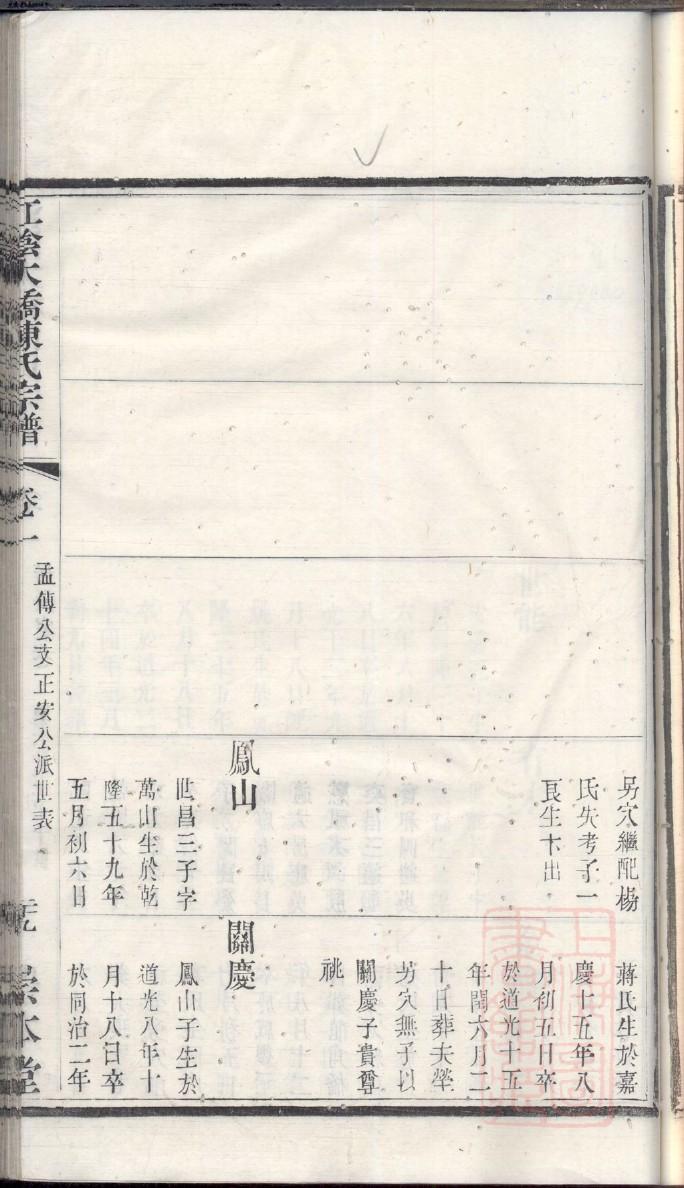 另穴繼配楊
氏失考子一
長生卞出
鳳山
世昌三子字
萬山生於乾
隆五十九年
五月初六日
蔣氏生於嘉
慶十五年八
月初五日卒
於道光十五
年閏六月二
十日葬夫塋
另穴無子以
關慶子貴尊
祧
關慶
鳳山子生於
道光八年十
月十八日卒
於同治二年
江陰大橋陳氏宗譜
卷一
孟傳公支正安公派世表
崇本堂